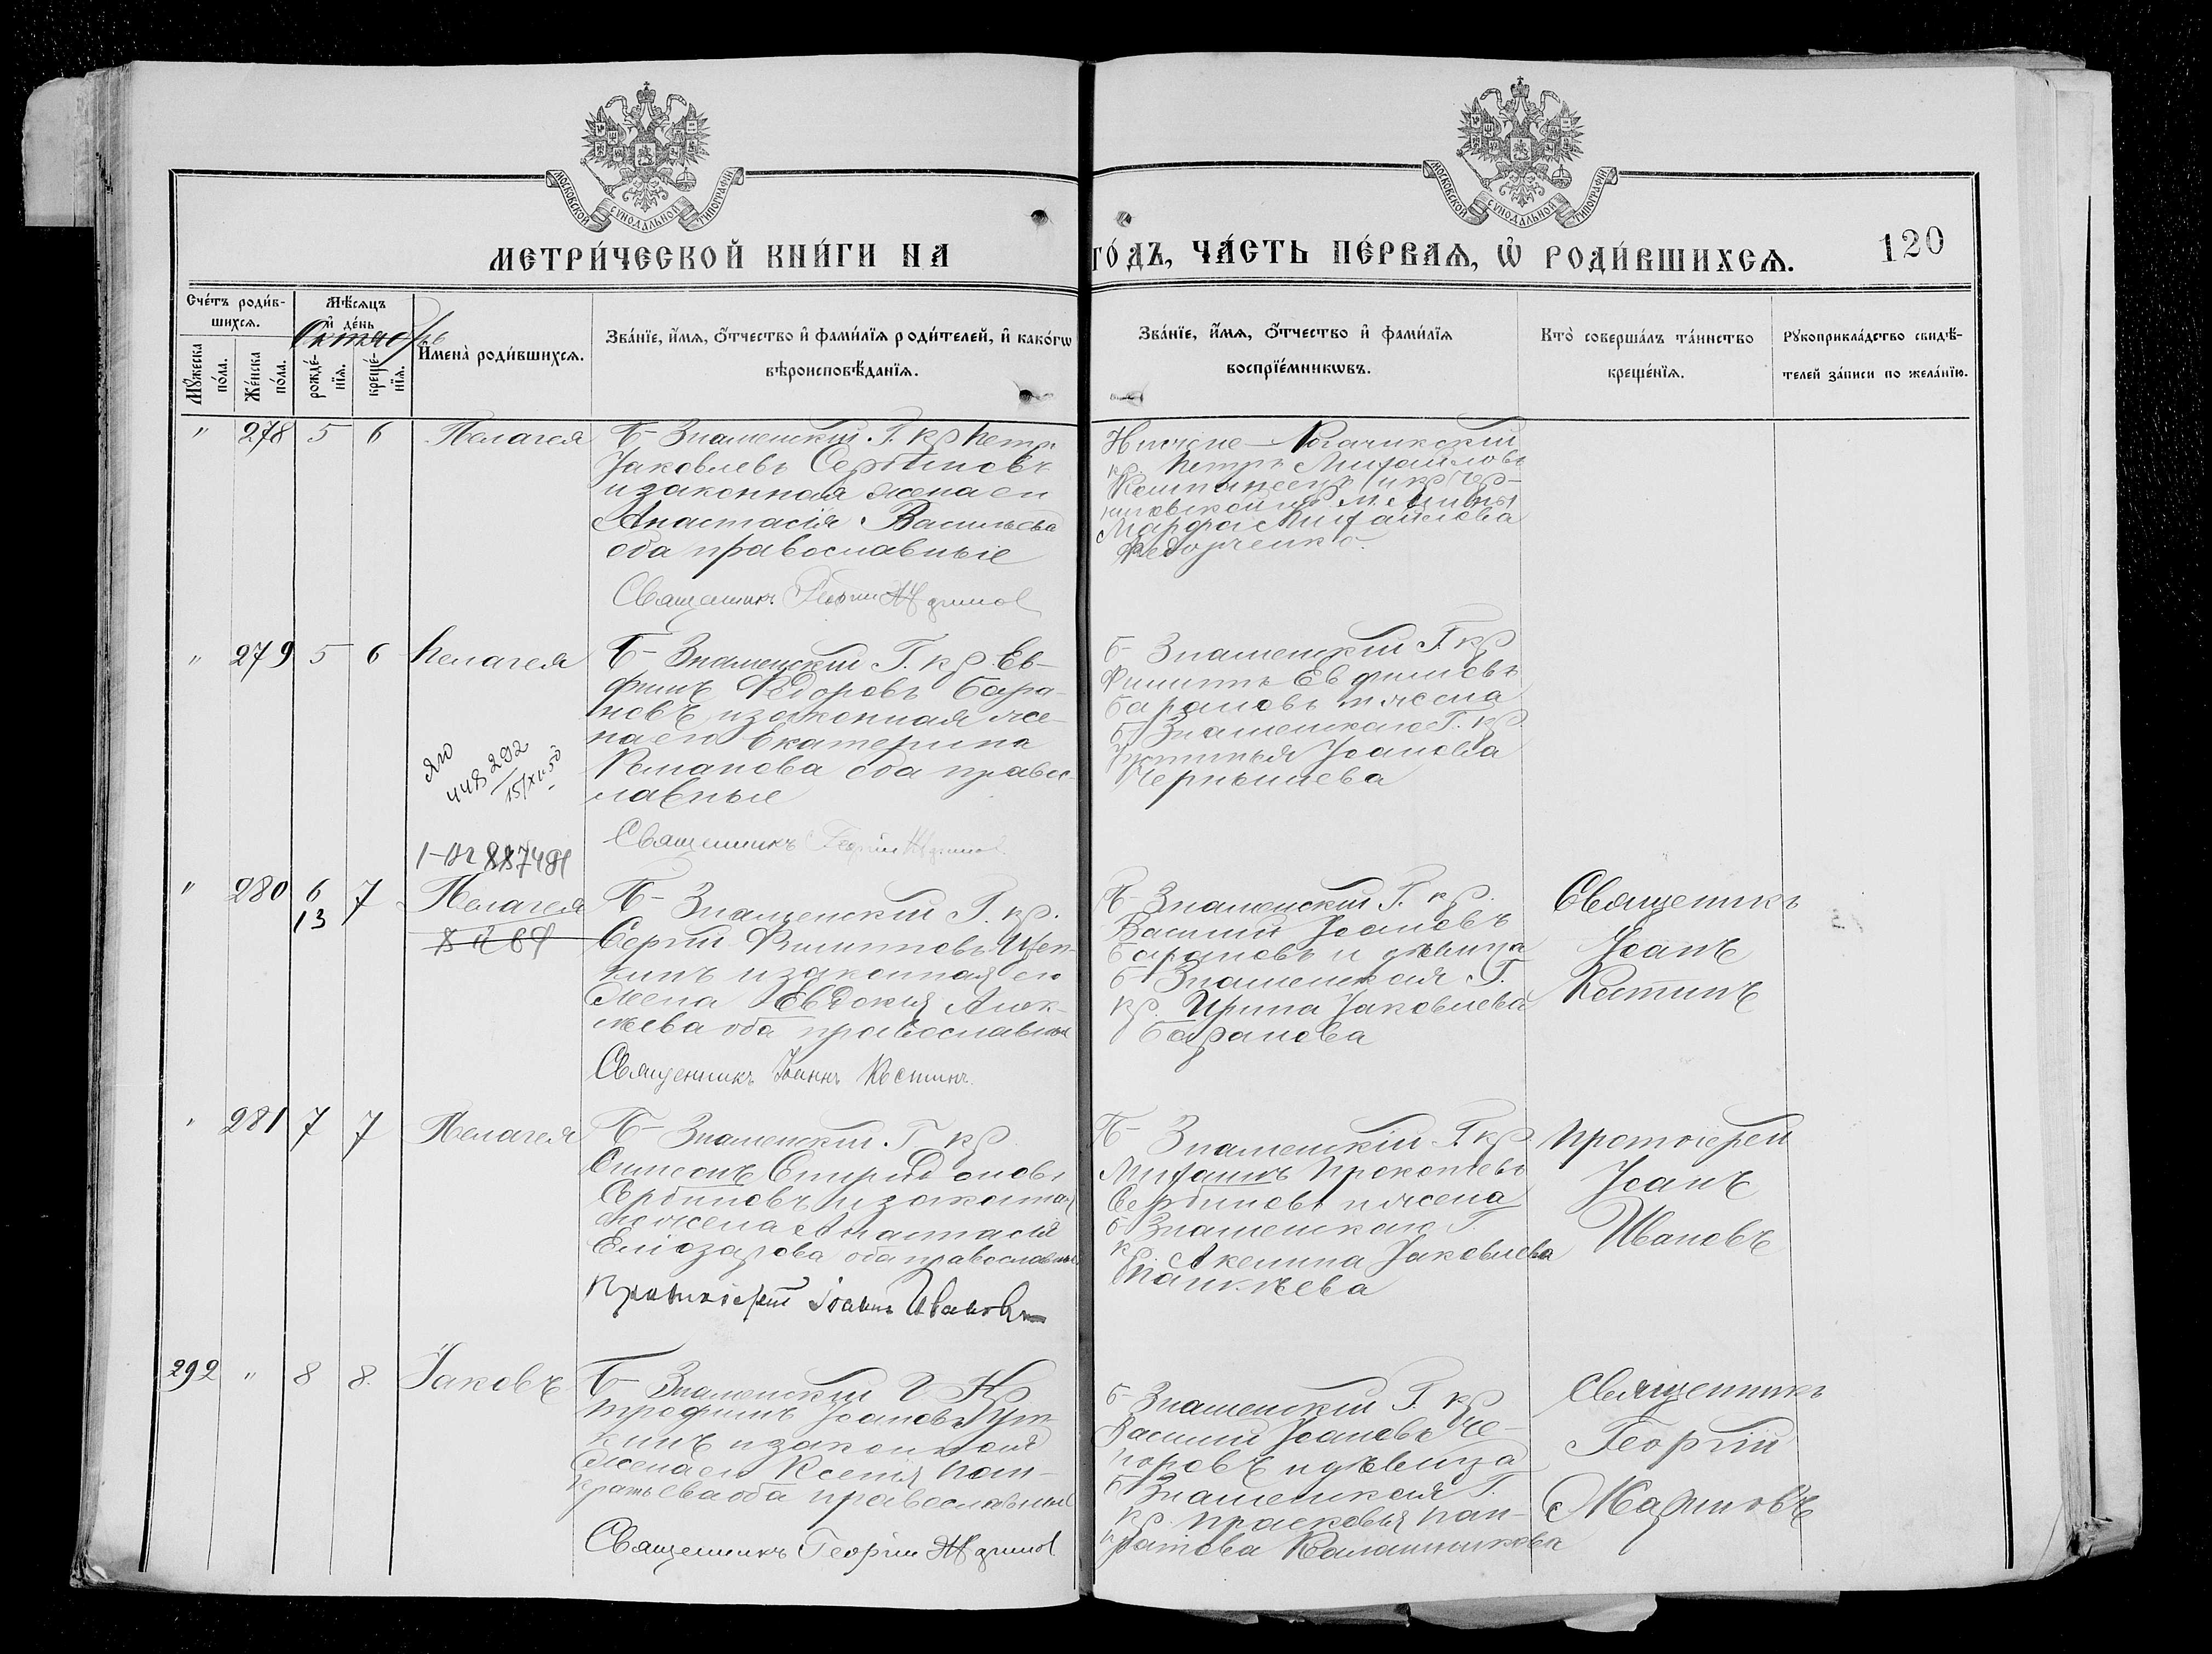 МОСКОВСКОЙ СУНОДАЛЬНОЙ ТИПОГРАФІИ
МОСКОВСКОЙ СУНОДАЛЬНОЙ ТИПОГРАФІИ
МЕТРИ́ЧЕСКОЙ КНИ́ГИ НА
ГО́ДЪ, ЧА́СТЬ ПЕ́РВАѦ, Ѡ҆ РОДИ́ВШИХСѦ.
120
Сче́тъ роди́в-
шихсѧ.
Мѣ́сѧцъ
и҆ де́нь
Октябрь
Мꙋ́жеска
по́ла.
Же́нска
по́ла.
рожде́-
нїѧ.
креще́-
нїѧ.
И҆мена̀ роди́вшихсѧ.
Зва́нїе, и҆́мѧ, ѻ҆́тчество и҆ фами́лїѧ роди́телей, и҆ како́гѡ
вѣроисповѣ́данїѧ.
Зва́нїе, и҆́мѧ, ѻ҆́тчество и҆ фами́лїѧ
воспрїе́мникѡвъ.
Кто̀ соверша́лъ та́инство
креще́нїѧ.
Рꙋкоприкла́дство свидѣ́-
телей за́писи по жела́нїю.
" 278 5 6 Пелагея
Б-Знаменскій. Г. кр Петръ
Јаковлевъ Сербиновъ
и законная жена ею
Анастасія Васильева
оба православные
Священникъ Георгій
Нижне-Рогачикскій
кр. Петръ Михайловъ
Марфа Михайлова
Федорченко.
" 279 5 6 Пелагея
Б-Знаменскій Г. кр Ев-
фимъ Федоровъ Бара-
новъ, и законная же-
на его Екатерина
Романова оба правос-
лавные
Священникъ Георгій
б-Знаменскій Г. кр
Филиппъ Евфимовъ
Барановъ и жена
б-Знаменскаго Г. кр
Јоанова
Чернышева
292
15/XI-50
" 280 6 7 Пелагея
13
Б-Знаменскій Г. кр.
Сергій Филипповъ Щеп-
кинъ и законная ею
жена Евдокія Алек-
сѣева оба православные
Священникъ Іоаннъ Костинъ
Б-Знаменскій Г. кр.
Василій Јоановъ
Барановъ и дѣвица
б-Знаменская Г.
кр. Ирина Јаковлева
Баранова
Священникъ
Јоанъ
Костинъ
281 7 7 Пелагея
Б-Знаменскій. Г кр
Симеонъ Спиридоновъ
Сербиновъ и законная
ею жена Анастасія
Еліозарова оба православные
Протоіерей Іоаннъ Ивановъ
Б-Знаменскій Г кр
Михаилъ Прокопіевъ
Сербиновъ и жена
б-Знаменскаго Г
кр. Акелина Јаковлева
Протоіерей
Јоанъ
Ивановъ
292 " 8 8. Јаковъ
Б-Знаменскій Г Кр
Трофимъ Јоановъ
и законная
жена ею Ксенія Пан-
кратьева оба православные
Священникъ Георгій
б-Знаменскій Г. кр
Василій Јоановъ Че-
норовъ и дѣвица
б-Знаменская Г.
кр. Прасковья Пан-
кратова Калашникова
Священникъ
Георгій